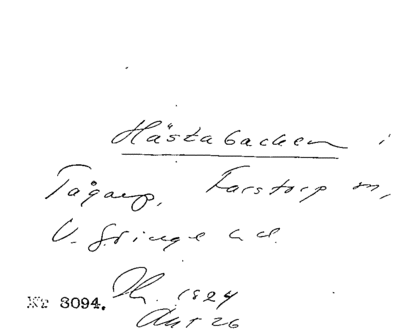 Hästabacken i
Tågarp, Farstorp sn,
V. Göinge hd.
Nr 3094. Th. 1924
Akt 26